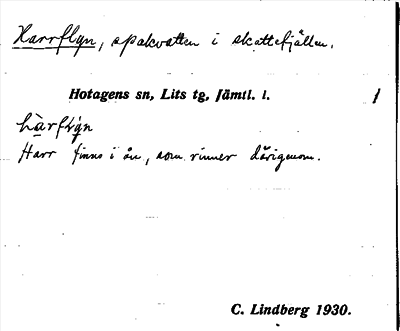 Harrflyn, spakvatten i skattefjällen.
Hotagens sn, Lits tg, Jämtl. l. 1
hàrfly̨n
Harr finns i ån, som rinner därigenom.
C. Lindberg 1930.